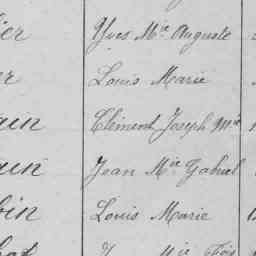 ier Yves Mie Auguste
er Louis Marie
ain Clément Joseph Mie
ain Jean Mie Gabriel
bin Louis Marie
hat J Mie Fois